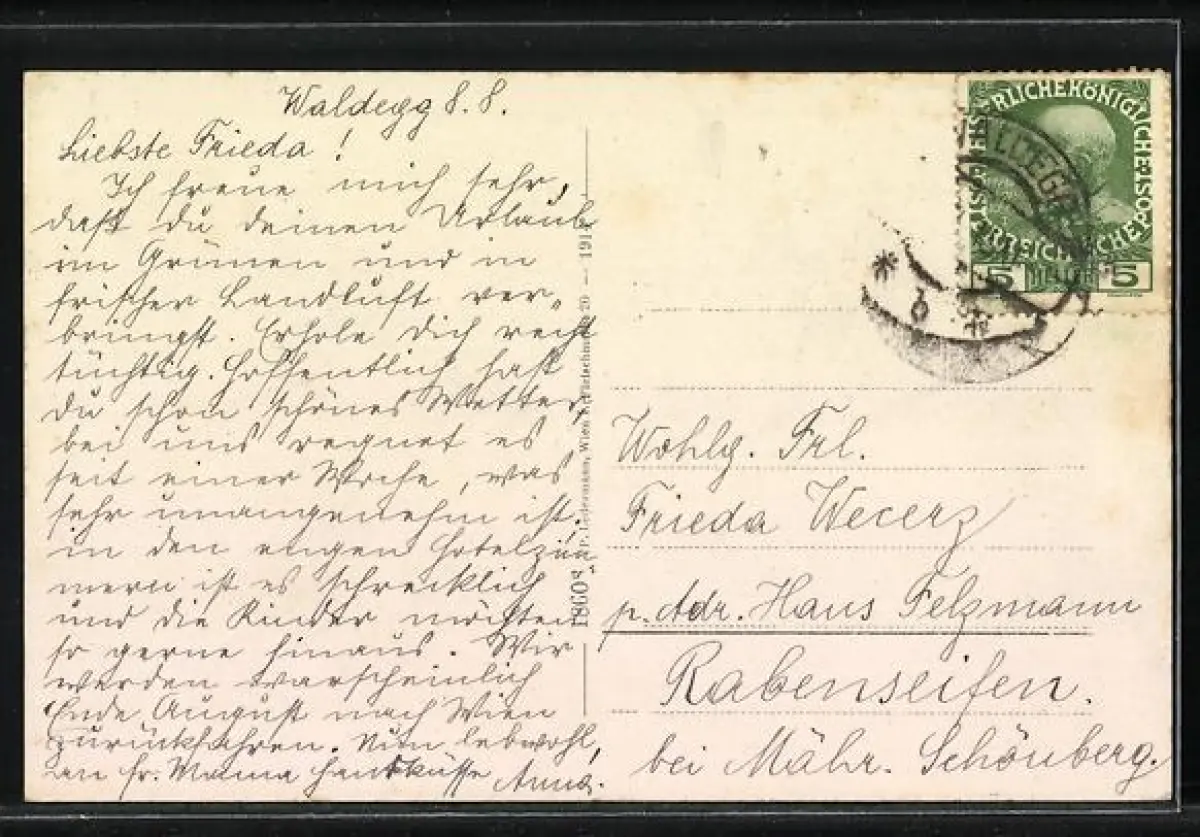 Waldegg 8. 8.
Liebste Frieda !
Ich freue mich sehr,
daß du deinen Urlaub
im Grünen und in
frischer Landluft ver-
bringst. Erhole dich recht
tüchtig. Hoffentlich hast
du schon schönes Wetter,
bei uns regnet es
seit einer Woche, was
sehr unangenehm ist,
in den engen Hotelzim-
mern ist es schrecklich
und die Kinder möchten
so gerne hinaus. Wir
werden warscheinlich
Ende August nach Wien
zurückfahren. Nun lebwohl,
an fr. Mama Handküsse Anna.
1860
P. Ledermann, Wien
20 — 191
KAISERLICHE KÖNIGLICHE ÖSTERREICHISCHE POST
5 HELLER 5
Wohlg. Frl.
Frieda Wecerz
p. Adr. Hans Felzmann
Rabenseifen.
bei Mähr. Schönberg.